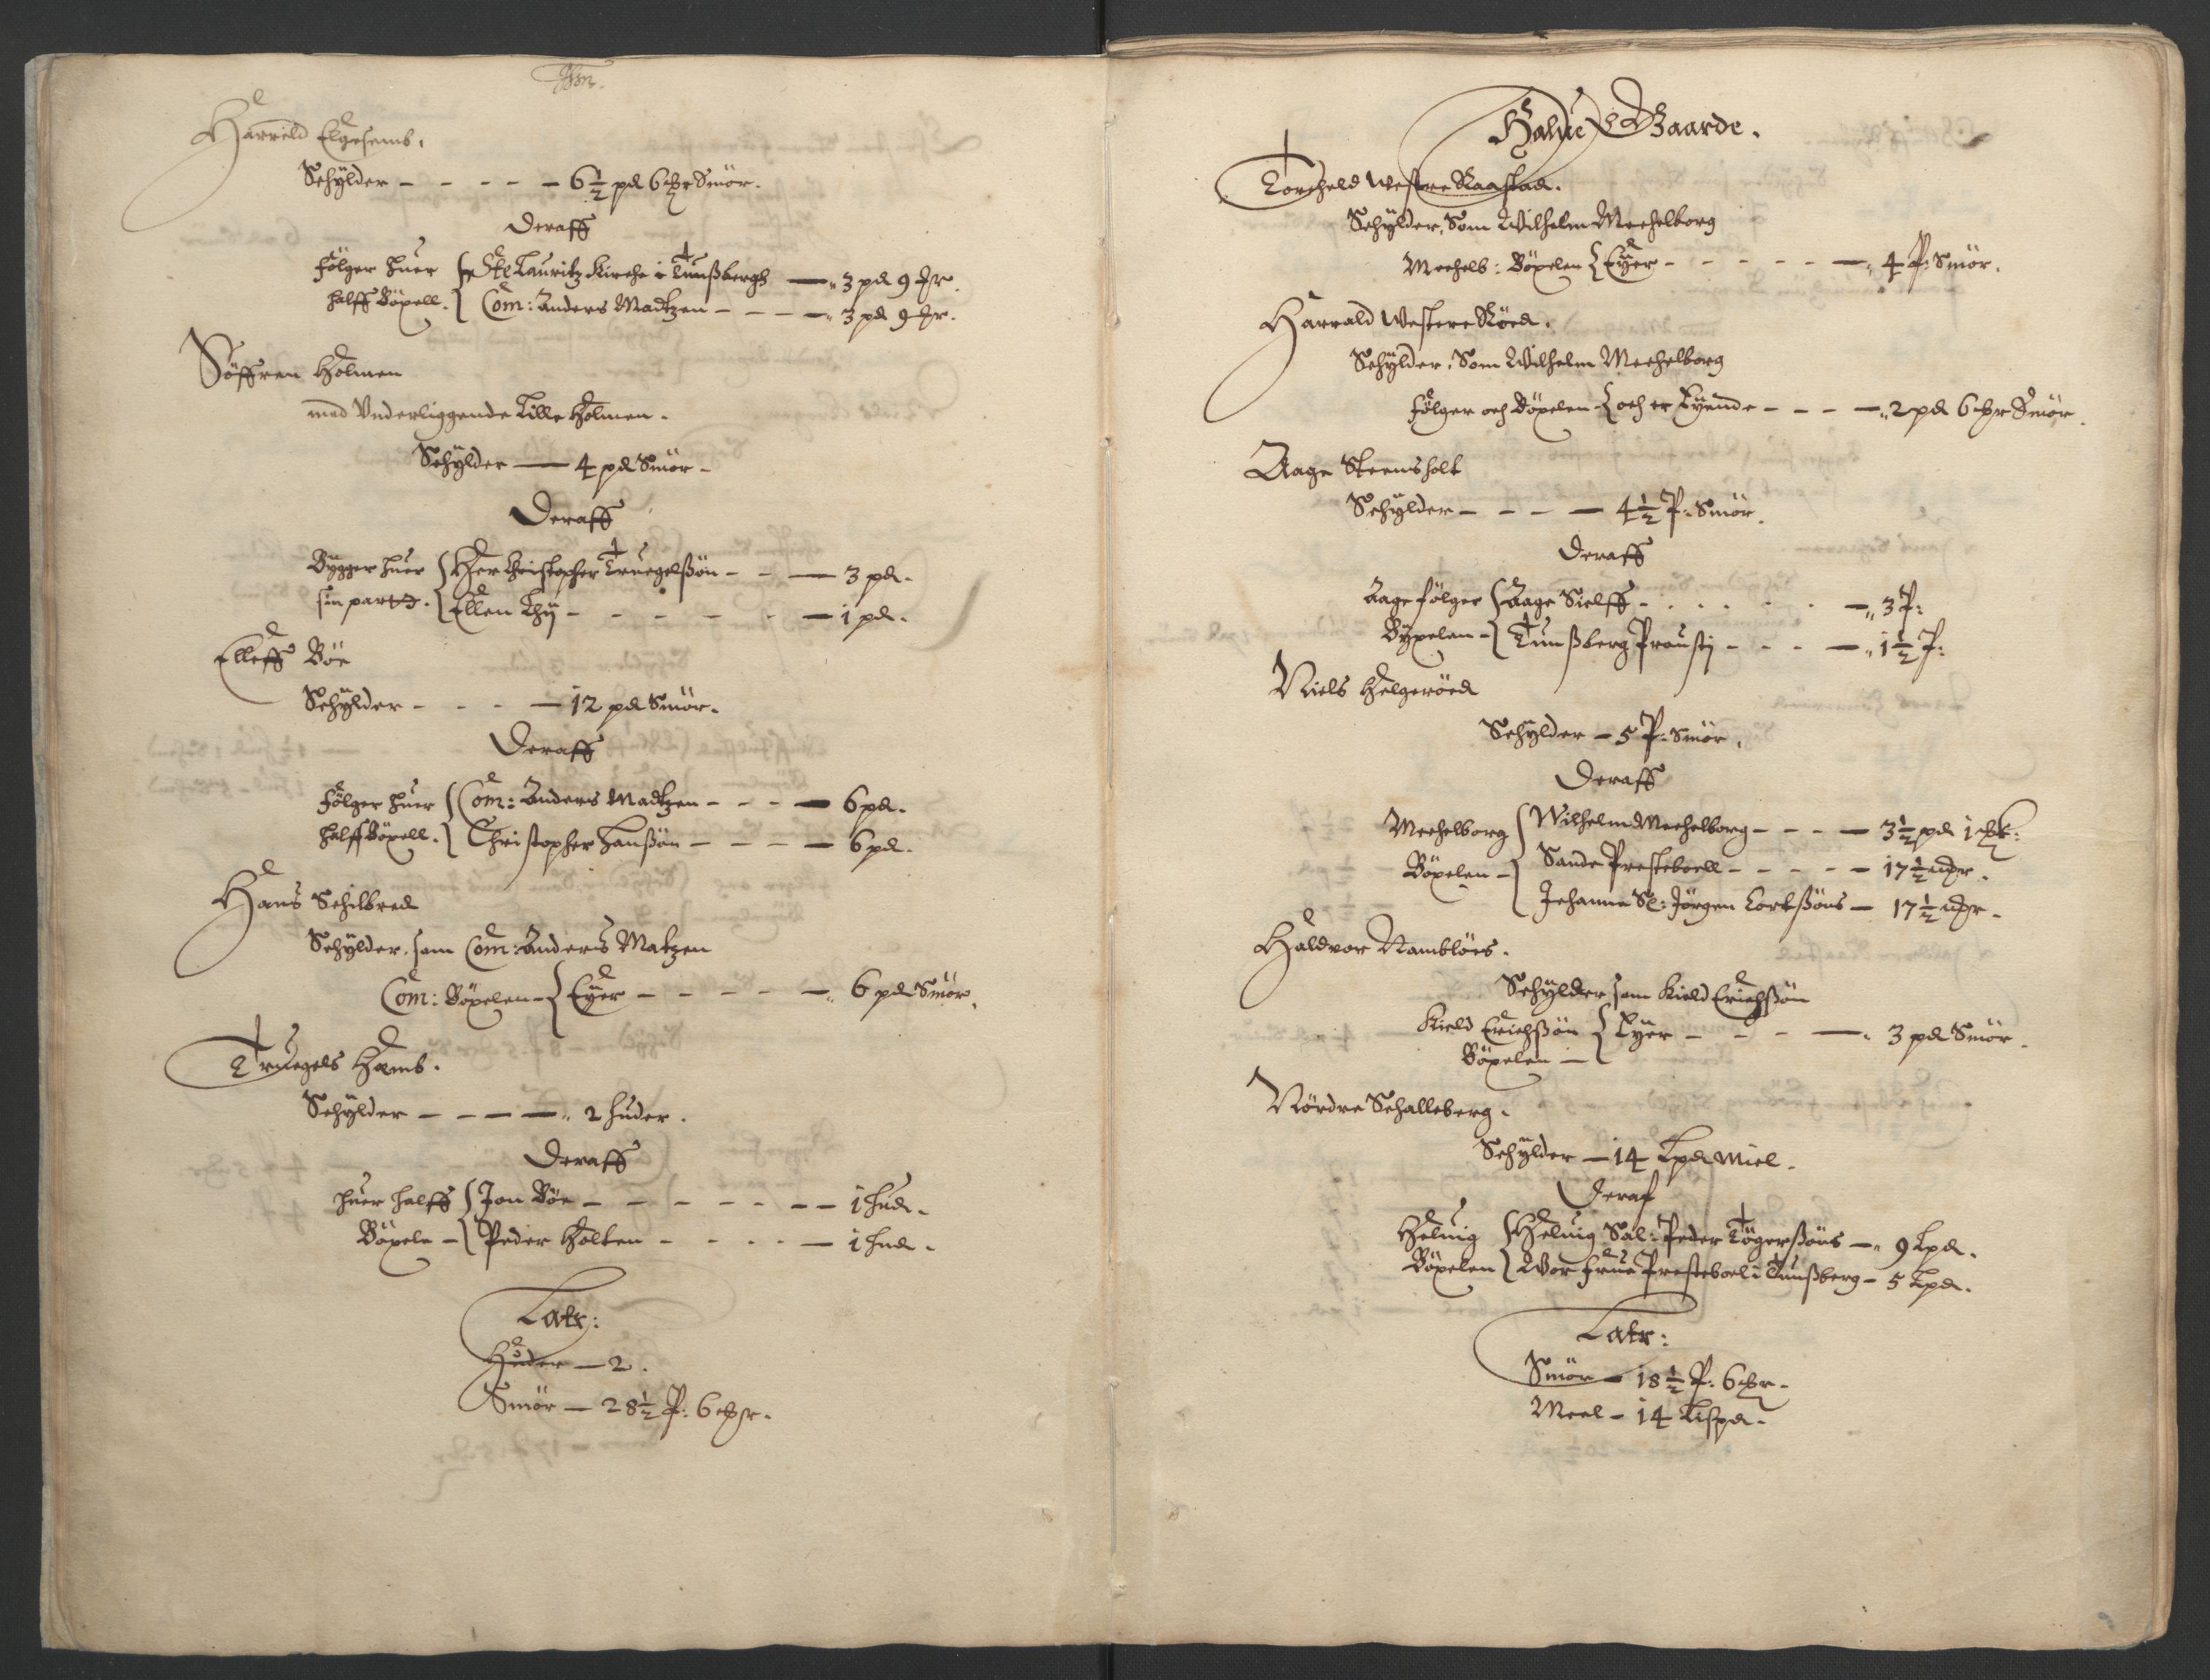 Harreld Elgesemb.
Schylder - - - - - 6½ pd 6 mkr Smör.
Deraff
Følger huer { Ste Lauritz Kirche i Tunßbergh — 3 pd 9 mr.
halff Böxell. { Com: Anders Madtzen - - - — 3 pd 9 mr.
Söffren Holmen
med Vnderliggende Lille Holmen.
Schylder — 4 pd Smör.
Deraff
Bygger huer { Her Christopher Truegelßön - - — 3 pd.
sin part. { Ellen Thy - - - - - — 1 pd.
Elleff Böe
Schylder - - - — 12 pd Smör.
Deraff
Følger huer { Com: Anders Madtzen - - - — 6 pd.
halff Böxell. { Christopher Hanßön - - - — 6 pd.
Hans Schilbred
Schylder, som Com: Anders Matzen
Com: Böxelen - { Eyer - - - - - — 6 pd Smör.
Truegels Hæmb.
Schylder - - - — 2 huder.
Deraff
huer halff { Jon Böe - - - - - - — 1 hud.
Böxele - { Peder Holten - - - - — 1 hud.
Latr:
Huder — 2.
Smör — 28½ P: 6 mkr.
Halfue Gaarde.
Torcheld Westre Raastad.
Schylder, Som Wilhelm Mechelborg
Mechelb: Böxelen { Eyer - - - - - — 4 P: Smör.
Harrald Westere Röed.
Schylder, Som Wilhelm Mechelborg
følger och Böxelen { och er Eyende - - - — 2 pd 6 mkr Smör.
Aage Steensholt
Schylder - - - — 4½ P: Smör.
Deraff
Aage følger { Aage Sielff - - - - - — 3 P:
Böxelen - { Tunßberg Prousti - - - — 1½ P:
Niels Helgeröed
Schylder — 5 P: Smör.
Deraff
Mechelborg { Wilhelm Mechelborg - - - — 3½ pd 1 mk:
Böxelen - { Sande Presteboell - - - - — 17½ mr.
{ Johanne Sl: Jörgen Lortßöns — 17½ mr.
Haldvor Namblöes.
Schylder som Kield Erichßön
Kield Erichßön { Eyer - - - — 3 pd Smör.
Böxelen —
Nördre Schalleberg.
Schylder — 14 Lpd Miel.
Deraf
Heluig { Heluig Sal: Peder Tögerßöns — 9 Lpd.
Böxelen { Wor frue Presteboel i Tunßberg - 5 Lpd.
Latr:
Smör — 18½ P: 6 mkr.
Meel - 14 Lispd.